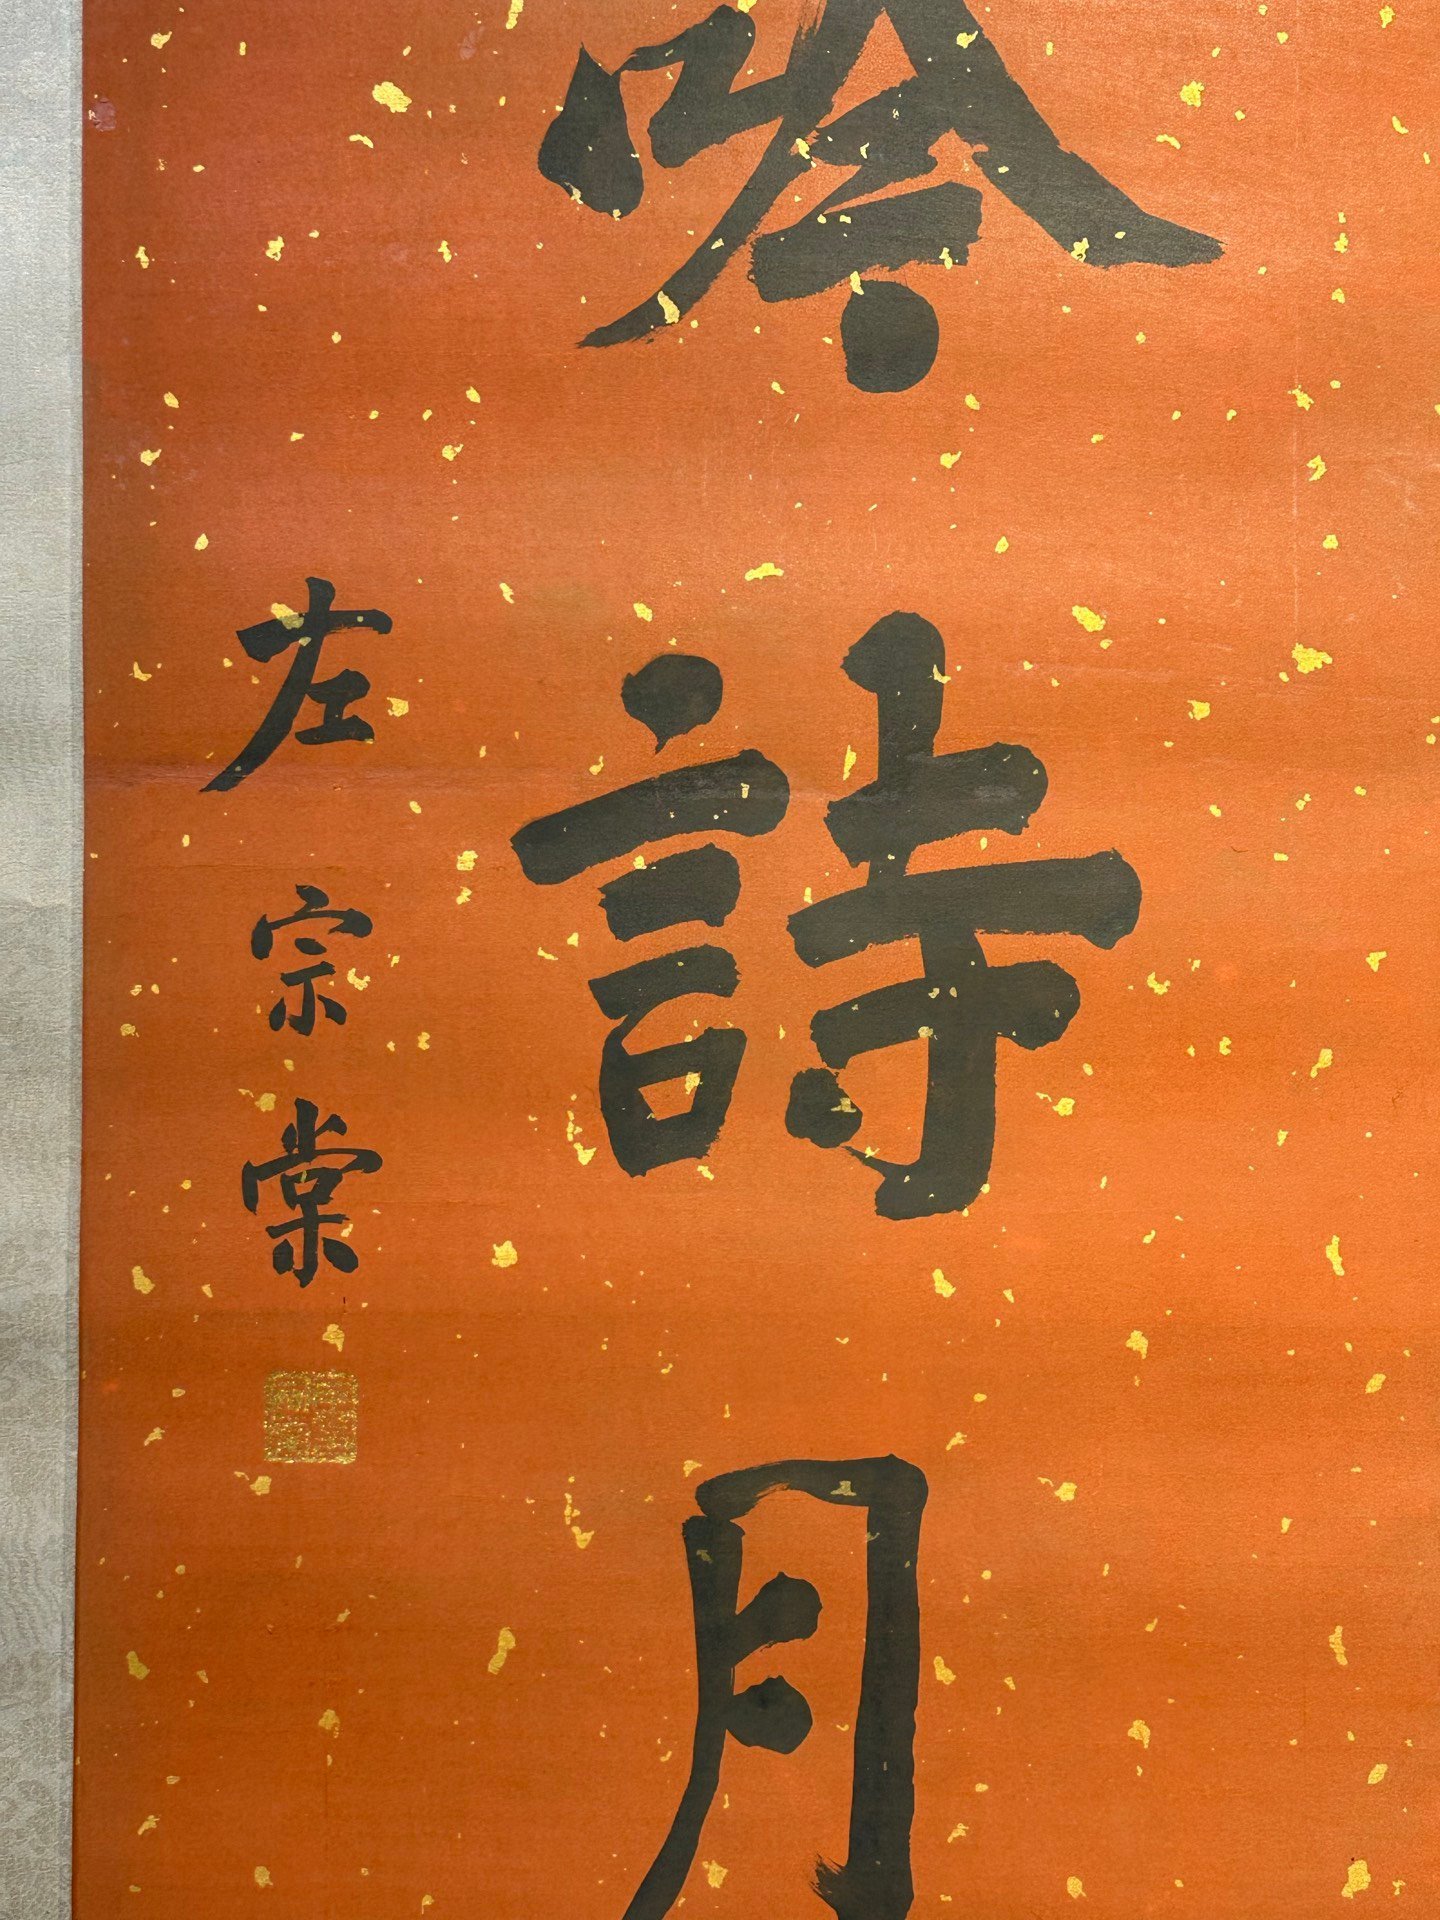 吟詩月
左宗棠